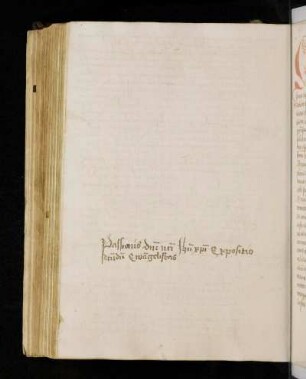 Passionis dnī nrī Ihū xpī Expositio
scdm̄ Ewāgelistas